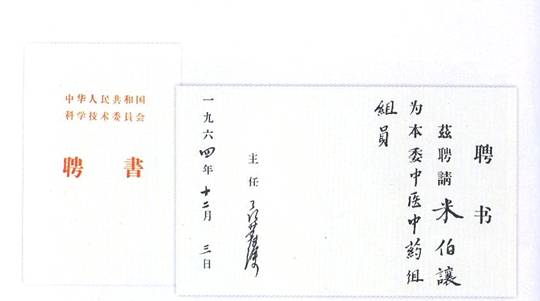 中华人民共和国
科学技术委員会
聘書
聘书
兹聘請米伯讓
为本委中医中药组
組員
主任
一九六四年十二月三日